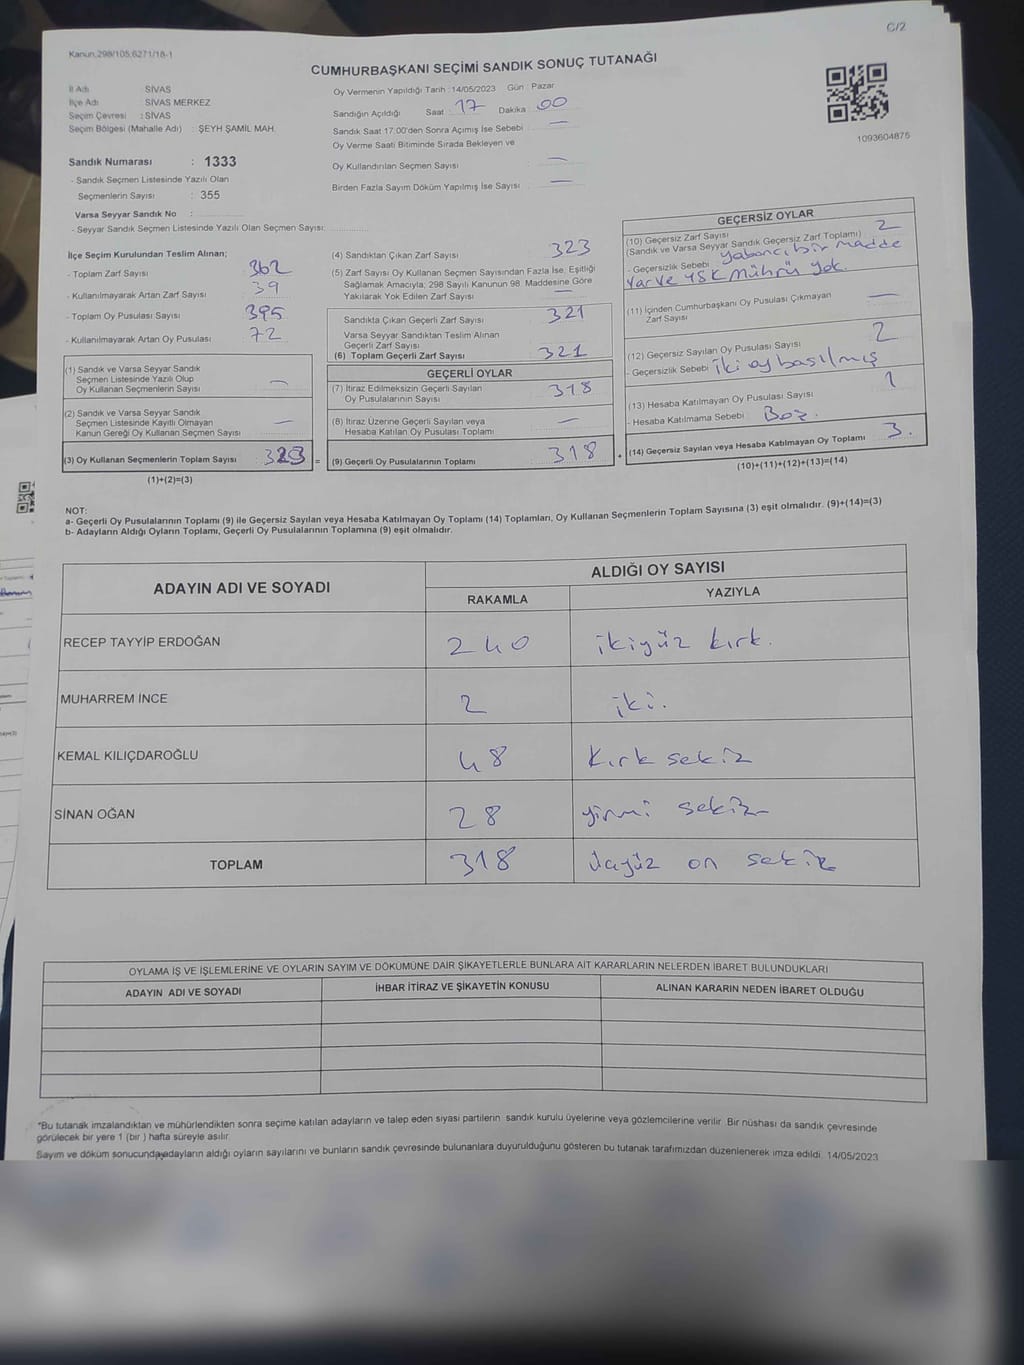 C/2
Kanun.298/105;6271/18-1
CUMHURBAŞKANI SEÇİMİ SANDIK SONUÇ TUTANAĞI
İl Adı SİVAS
İlçe Adı : SİVAS MERKEZ
Seçim Çevresi : SİVAS
Seçim Bölgesi (Mahalle Adı) : ŞEYH ŞAMİL MAH.
Sandık Numarası : 1333
- Sandık Seçmen Listesinde Yazılı Olan
Seçmenlerin Sayısı : 355
Varsa Seyyar Sandık No :
- Seyyar Sandık Seçmen Listesinde Yazılı Olan Seçmen Sayısı:
Oy Vermenin Yapıldığı Tarih : 14/05/2023 Gün : Pazar
Sandığın Açıldığı Saat : 17 Dakika : 00
Sandık Saat 17:00'den Sonra Açımış İse Sebebi : —
Oy Verme Saati Bitiminde Sırada Bekleyen ve
Oy Kullandırılan Seçmen Sayısı —
Birden Fazla Sayım Döküm Yapılmış İse Sayısı : —
1093604875
İlçe Seçim Kurulundan Teslim Alınan;
- Toplam Zarf Sayısı 362
- Kullanılmayarak Artan Zarf Sayısı : 39
- Toplam Oy Pusulası Sayısı : 395
- Kullanılmayarak Artan Oy Pusulası : 72
(1) Sandık ve Varsa Seyyar Sandık
Seçmen Listesinde Yazılı Olup
Oy Kullanan Seçmenlerin Sayısı —
(2) Sandık ve Varsa Seyyar Sandık
Seçmen Listesinde Kayıtlı Olmayan
Kanun Gereği Oy Kullanan Seçmen Sayısı —
(3) Oy Kullanan Seçmenlerin Toplam Sayısı 323 =
(1)+(2)=(3)
(4) Sandıktan Çıkan Zarf Sayısı 323
(5) Zarf Sayısı Oy Kullanan Seçmen Sayısından Fazla İse, Eşitliği
Sağlamak Amacıyla; 298 Sayılı Kanunun 98. Maddesine Göre
Yakılarak Yok Edilen Zarf Sayısı —
Sandıkta Çıkan Geçerli Zarf Sayısı : 321
Varsa Seyyar Sandıktan Teslim Alınan
Geçerli Zarf Sayısı
(6) Toplam Geçerli Zarf Sayısı 321
GEÇERLİ OYLAR
(7) İtiraz Edilmeksizin Geçerli Sayılan
Oy Pusulalarının Sayısı : 318
(8) İtiraz Üzerine Geçerli Sayılan veya
Hesaba Katılan Oy Pusulası Toplamı —
(9) Geçerli Oy Pusulalarının Toplamı 318 +
GEÇERSİZ OYLAR
(10) Geçersiz Zarf Sayısı
(Sandık ve Varsa Seyyar Sandık Geçersiz Zarf Toplamı) 2
- Geçersizlik Sebebi : yabancı bir madde
var ve YSK mührü yok.
(11) İçinden Cumhurbaşkanı Oy Pusulası Çıkmayan
Zarf Sayısı —
(12) Geçersiz Sayılan Oy Pusulası Sayısı 2
- Geçersizlik Sebebi : iki oy basılmış
(13) Hesaba Katılmayan Oy Pusulası Sayısı 1
- Hesaba Katılmama Sebebi : Boş.
(14) Geçersiz Sayılan veya Hesaba Katılmayan Oy Toplamı 3.
(10)+(11)+(12)+(13)=(14)
NOT:
a- Geçerli Oy Pusulalarının Toplamı (9) ile Geçersiz Sayılan veya Hesaba Katılmayan Oy Toplamı (14) Toplamları, Oy Kullanan Seçmenlerin Toplam Sayısına (3) eşit olmalıdır. (9)+(14)=(3)
b- Adayların Aldığı Oyların Toplamı, Geçerli Oy Pusulalarının Toplamına (9) eşit olmalıdır.
ADAYIN ADI VE SOYADI ALDIĞI OY SAYISI
RAKAMLA YAZIYLA
RECEP TAYYİP ERDOĞAN 240 ikiyüz kırk.
MUHARREM İNCE 2 iki.
KEMAL KILIÇDAROĞLU 48 Kırk sekiz
SİNAN OĞAN 28 yirmi sekiz
TOPLAM 318 üçyüz on sekiz
OYLAMA İŞ VE İŞLEMLERİNE VE OYLARIN SAYIM VE DÖKÜMÜNE DAİR ŞİKAYETLERLE BUNLARA AİT KARARLARIN NELERDEN İBARET BULUNDUKLARI
ADAYIN ADI VE SOYADI İHBAR İTİRAZ VE ŞİKAYETİN KONUSU ALINAN KARARIN NEDEN İBARET OLDUĞU
*Bu tutanak imzalandıktan ve mühürlendikten sonra seçime katılan adayların ve talep eden siyasi partilerin sandık kurulu üyelerine veya gözlemcilerine verilir. Bir nüshası da sandık çevresinde
görülecek bir yere 1 (bir ) hafta süreyle asılır.
Sayım ve döküm sonucunda adayların aldığı oyların sayılarını ve bunların sandık çevresinde bulunanlara duyurulduğunu gösteren bu tutanak tarafımızdan düzenlenerek imza edildi. 14/05/2023